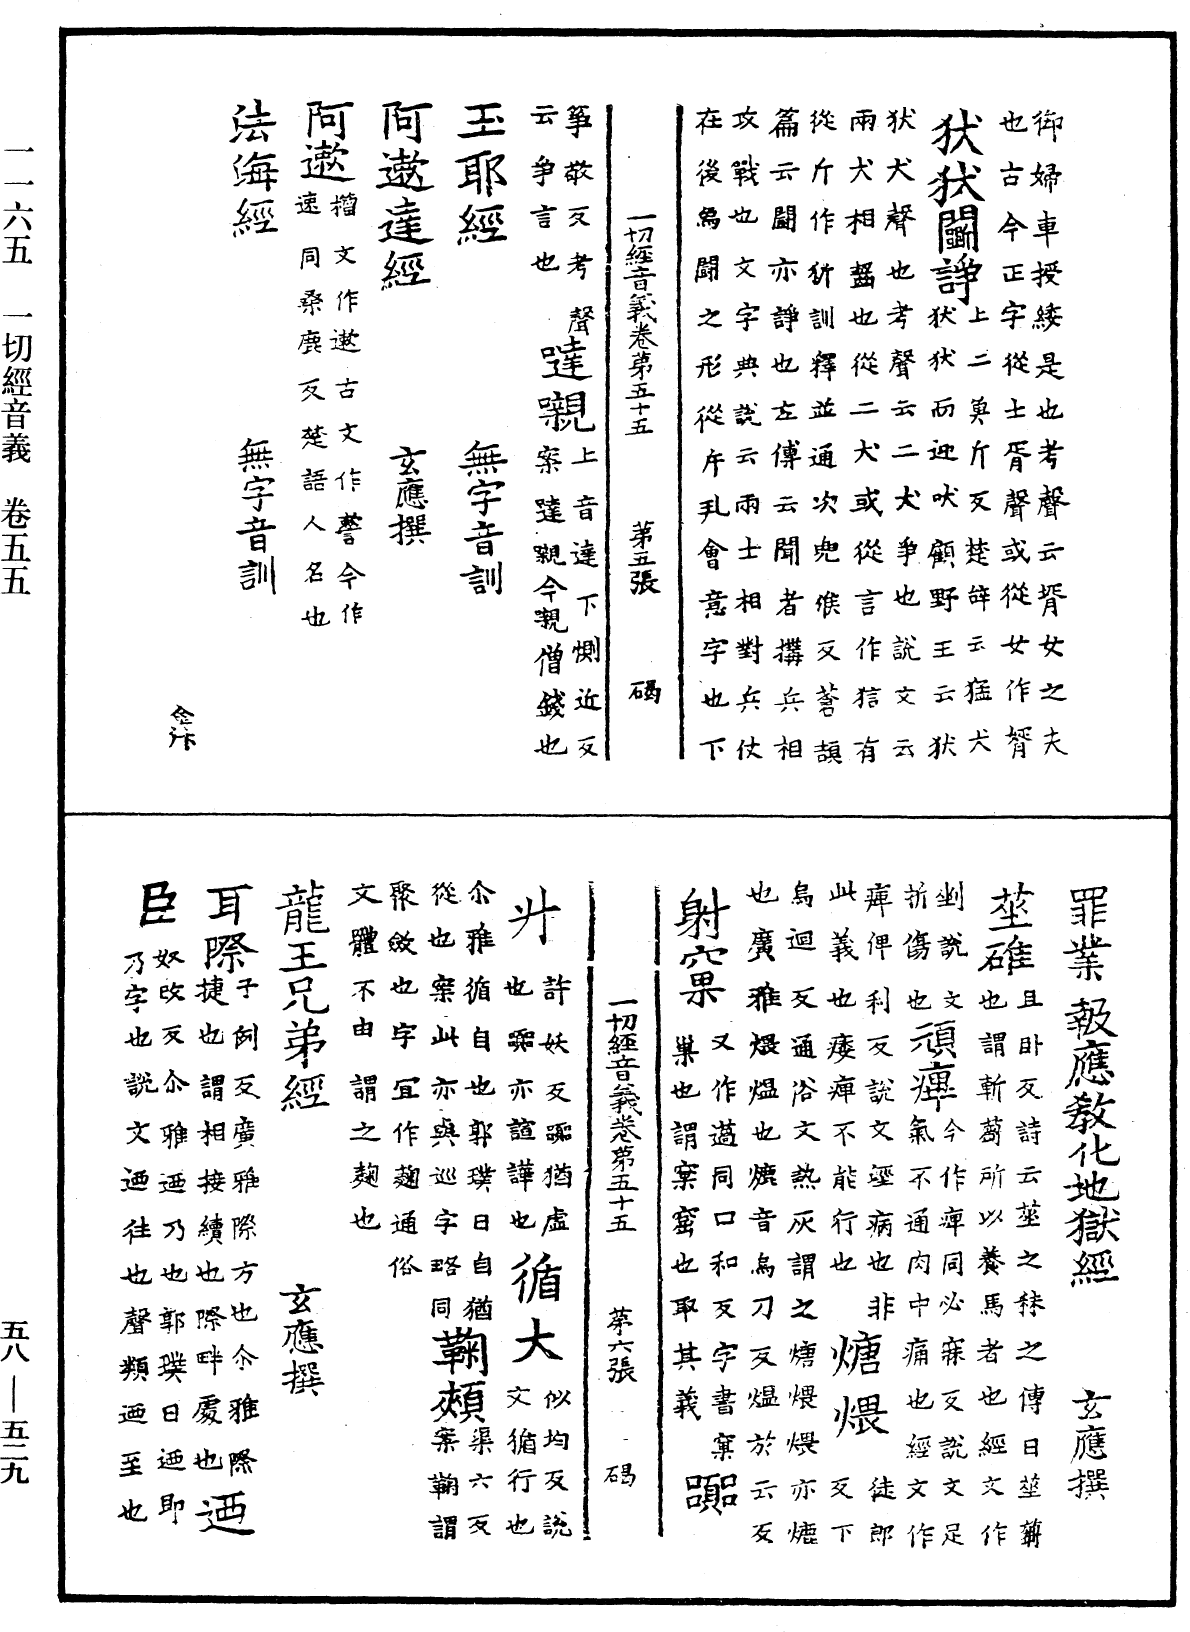 一一六五　一切經音義　卷五五
御婦車授綏是也考聲云壻女之夫
也古今正字從士胥聲或從女作婿
狀狀鬭諍上二奠斤反楚辞云猛犬
狀狀而迎吠顧野王云狀
狀犬聲也考聲云二犬爭也說文云
兩犬相齧也從二犬或從言作㹞有
從斤作㹞訓釋並通次兜候反蒼頡
篇云鬭亦諍也左傳云聞者搆兵相
攻戰也文字典說云兩士相對兵仗
在後為鬭之形從𠂈丮會意字也下
一切經音義卷第五十五　第五張　碣
箏敬反考聲
云爭言也
噠嚫上音達下惻近反
案躂嚫今嚫僧錢也
玉耶經　無字音訓
阿遬達經　玄應撰
阿遬籀文作遬古文作警今作
速同桑鹿反楚語人名也
法海經　無字音訓
罪業報應教化地獄經　玄應撰
莝碓且卧反詩云莝之秣之傳曰莝蒭
也謂斬蒭所以養馬者也經文作
剉說文
折傷也
頑痺今作痺同必寐反說文足
氣不通肉中痛也經文作
㾙俾利反說文逕病也非
此義也痿痺不能行也
煻煨徒郎
反下
烏迴反通俗文熱灰謂之煻煨煨亦熝
也廣雅煨熅也熝音烏刀反熅於云反
射窠又作薖同口和反字書窠
巢也謂窠窟也取其義
嚻
一切經音義卷第五十五　第六張　碣
升許妖反嚻猶虛
也嚻亦諠譁也
循大似均反說
文循行也
尒雅循自也郭璞曰自猶
從也案此亦與巡字略同
鞠頰渠六反
案鞠謂
聚斂也字冝作麹通俗
文體不由謂之麹也
龍王兄弟經　玄應撰
耳際子例反廣雅際方也尒雅際
捷也謂相接續也際畔處也
迺
臣奴改反尒雅迺乃也郭璞曰迺即
乃字也說文迺往也聲類迺至也
五八—五二九